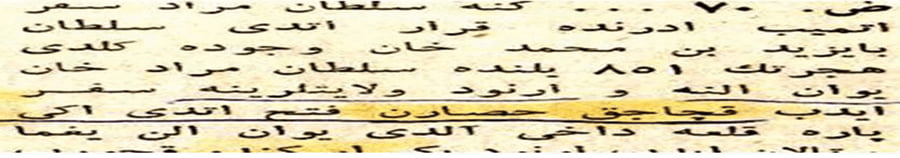 ض. ٧٠ ... كنه سلطان مراد سفر
اتمیب ادرنده قرار اتدی سلطان
بایزید بن محمد خان وجوده كلدی
هجرتك ٨٥١ یلنده سلطان مراد خان
یوان النه و ارنود ولایتلرینه سفر
ایدب قچاجق حصارن فتح اتدی اكی
پاره قلعه داخی آلدی یوان الن یغما